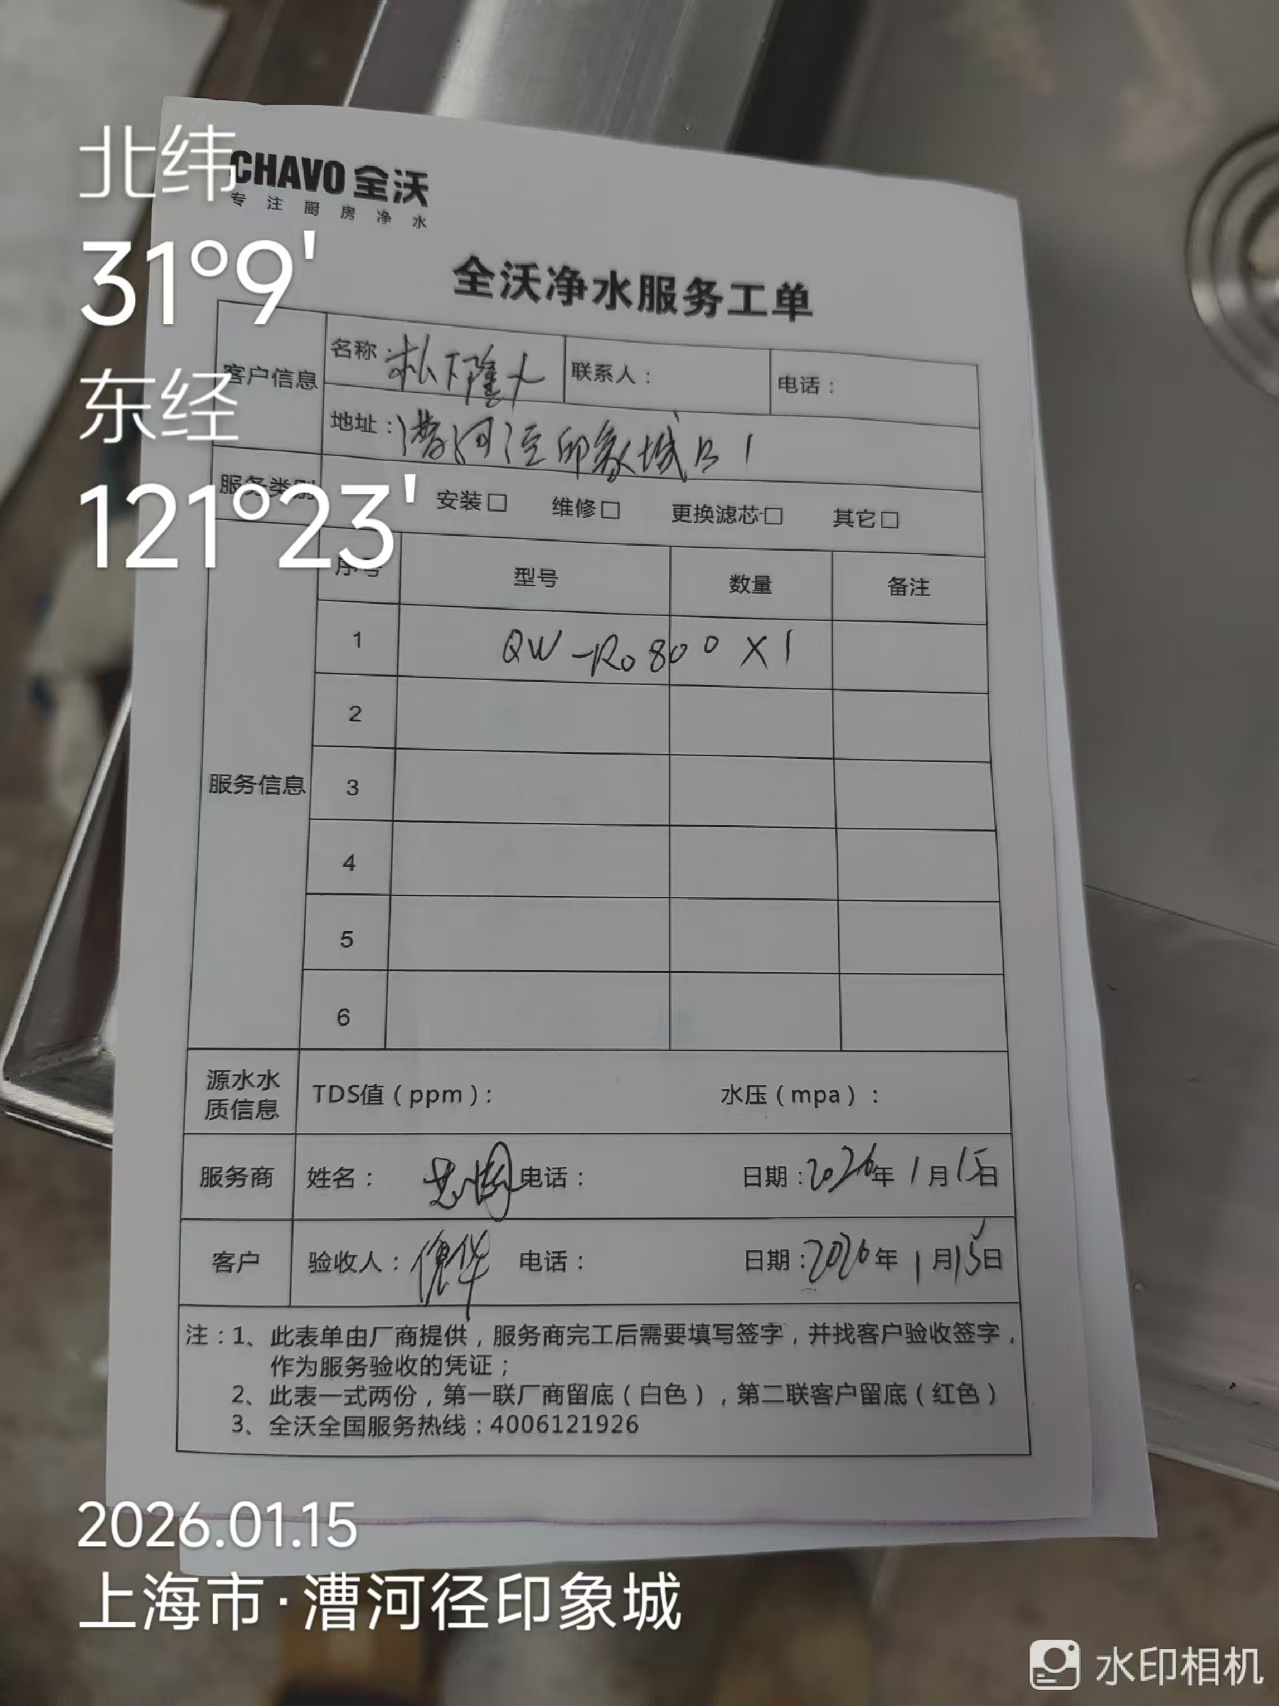 CHAVO 全沃
专注厨房净水
全沃净水服务工单
客户信息 名称：松下隆 联系人： 电话：
地址：漕河泾印象城B1
服务类别 安装□ 维修□ 更换滤芯□ 其它□
服务信息 序号 型号 数量 备注
1 QW-Ro800 X1
2
3
4
5
6
源水水质信息 TDS值（ppm）： 水压（mpa）：
服务商 姓名： 电话： 日期：2026年1月15日
客户 验收人： 电话： 日期：2026年1月15日
注：1、此表单由厂商提供，服务商完工后需要填写签字，并找客户验收签字，
作为服务验收的凭证；
2、此表一式两份，第一联厂商留底（白色），第二联客户留底（红色）
3、全沃全国服务热线：4006121926
北纬
31°9'
东经
121°23'
2026.01.15
上海市·漕河径印象城
水印相机